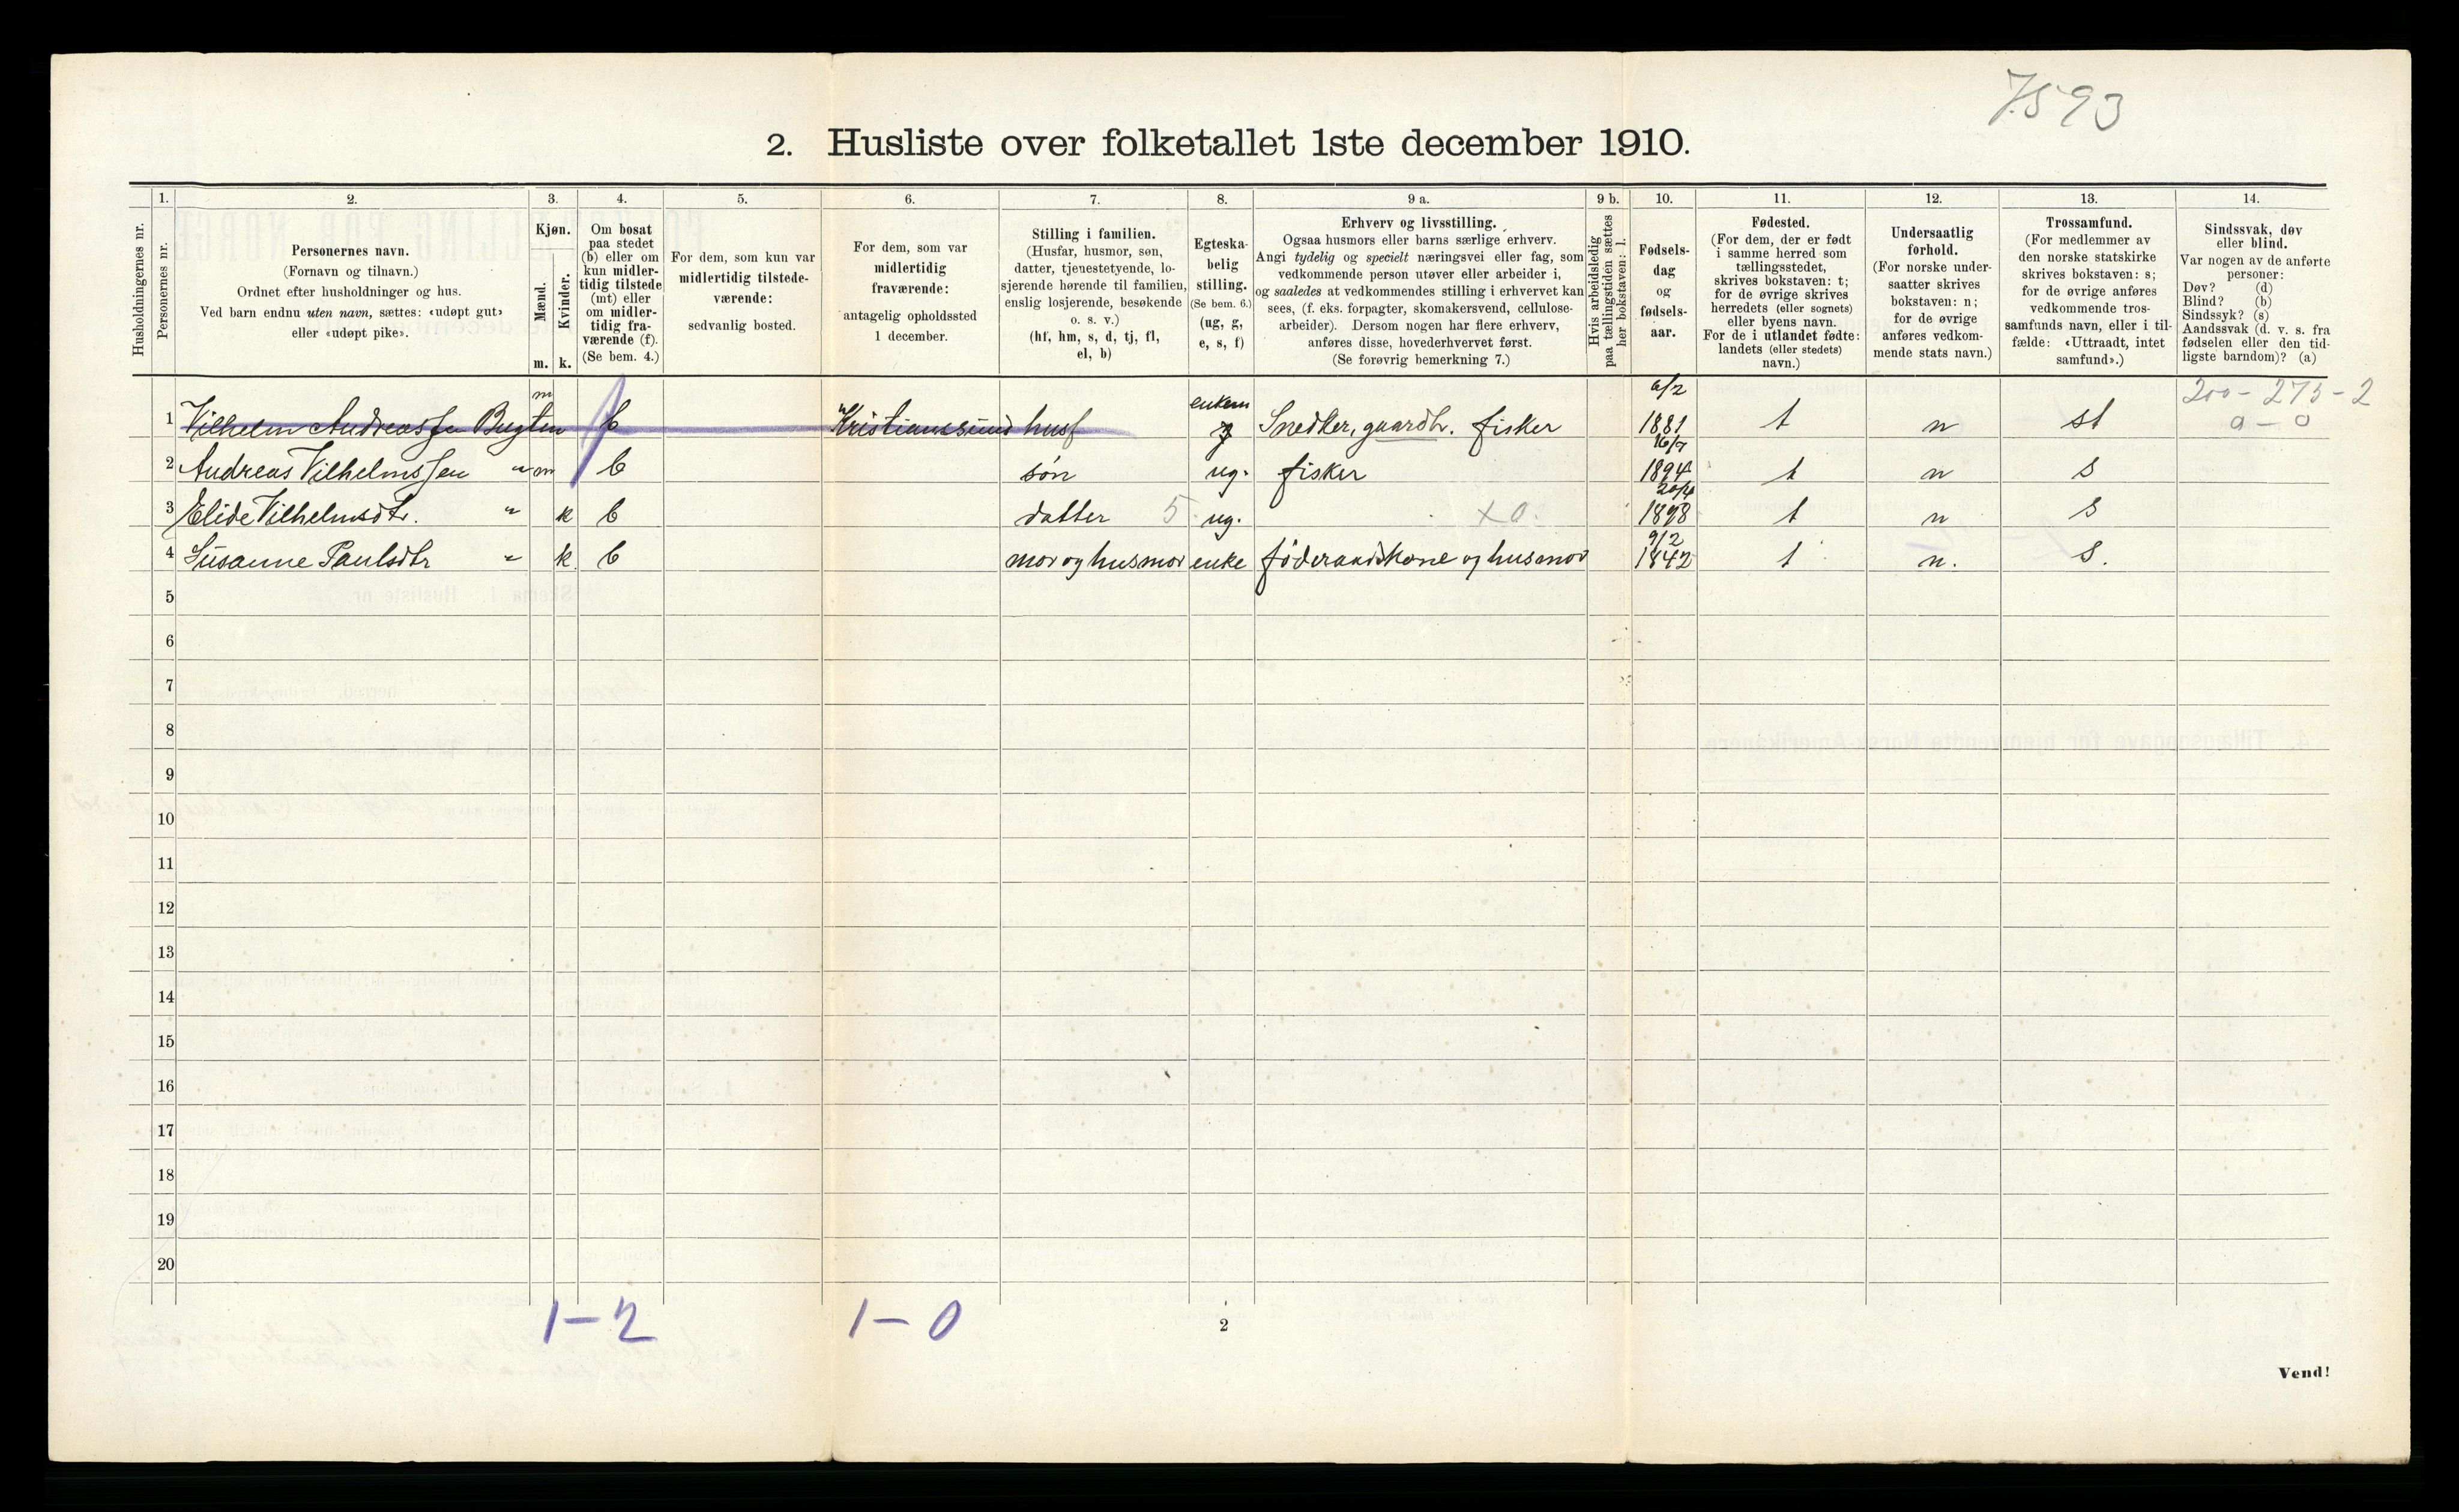 7593
2. Husliste over folketallet 1ste december 1910.
Husholdningernes nr.
1.
Personernes nr.
2.
Personernes navn.
(Fornavn og tilnavn.)
Ordnet efter husholdninger og hus.
Ved barn endnu uten navn, sættes: «udøpt gut»
eller «udøpt pike».
3.
Kjøn.
Mænd.
Kvinder.
m. k.
4.
Om bosat
paa stedet
(b) eller om
kun midler-
tidig tilstede
(mt) eller
om midler-
tidig fra-
værende (f).
(Se bem. 4.)
5.
For dem, som kun var
midlertidig tilstede-
værende:
sedvanlig bosted.
6.
For dem, som var
midlertidig
fraværende:
antagelig opholdssted
1 december.
7.
Stilling i familien.
(Husfar, husmor, søn,
datter, tjenestetyende, lo-
sjerende hørende til familien,
enslig losjerende, besøkende
o. s. v.)
(hf, hm, s, d, tj, fl,
el, b)
8.
Egteska-
belig
stilling.
(Se bem. 6.)
(ug, g,
e, s, f)
9 a.
Erhverv og livsstilling.
Ogsaa husmors eller barns særlige erhverv.
Angi tydelig og specielt næringsvei eller fag, som
vedkommende person utøver eller arbeider i,
og saaledes at vedkommendes stilling i erhvervet kan
sees, (f. eks. forpagter, skomakersvend, cellulose-
arbeider). Dersom nogen har flere erhverv,
anføres disse, hovederhvervet først.
(Se forøvrig bemerkning 7.)
9 b.
Hvis arbeidsledig
paa tællingstiden sættes
her bokstaven: l.
10.
Fødsels-
dag
og
fødsels-
aar.
11.
Fødested.
(For dem, der er født
i samme herred som
tællingsstedet,
skrives bokstaven: t;
for de øvrige skrives
herredets (eller sognets)
eller byens navn.
For de i utlandet fødte:
landets (eller stedets)
navn.)
12.
Undersaatlig
forhold.
(For norske under-
saatter skrives
bokstaven: n;
for de øvrige
anføres vedkom-
mende stats navn.)
13.
Trossamfund.
(For medlemmer av
den norske statskirke
skrives bokstaven: s;
for de øvrige anføres
vedkommende tros-
samfunds navn, eller i til-
fælde: «Uttraadt, intet
samfund».)
14.
Sindssvak, døv
eller blind.
Var nogen av de anførte
personer:
Døv? (d)
Blind? (b)
Sindssyk? (s)
Aandssvak (d. v. s. fra
fødselen eller den tid-
ligste barndom)? (a)
200 - 275 - 2
0 - 0
1 Vilhelm Andreassen Bugten m b Kristianssund husf enkem Snedker, gaardbr. fisker 6/2 1881 t n st
2 Andreas Vilhelmssen " m b søn ug. fisker 16/7 1894 t n s
3 Elide Vilhelmsdtr. " k b datter 5 ug. x0. 20/4 1898 t n s
4 Susanne Paulsdtr " k. b mor og husmor enke føderaadskone og husmor 9/2 1842 t n. s.
5
6
7
8
9
10
11
12
13
14
15
16
17
18
19
20
1 - 2 1 - 0
2
Vend!